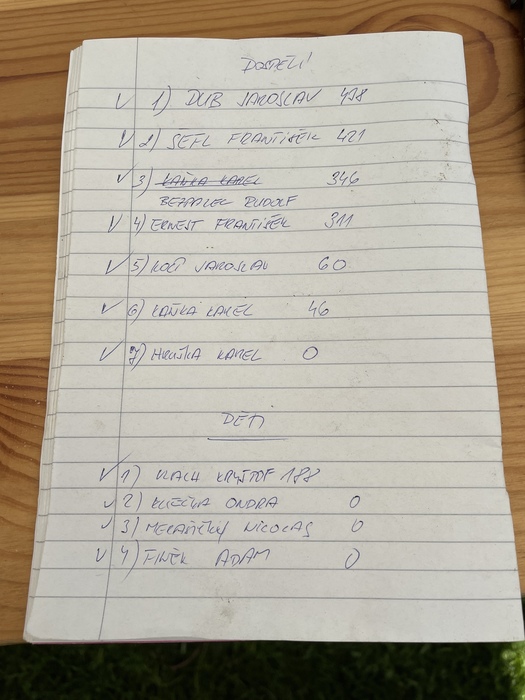 DOSPĚLÍ
✓ 1) DUB JAROSLAV 498
✓ 2) ŠEFL FRANTIŠEK 421
✓ 3) KAŇKA KAREL 346
BEZPALEC RUDOLF
✓ 4) ERNEST FRANTIŠEK 311
✓ 5) KOČÍ JAROSLAV 60
✓ 6) KAŇKA KAREL 46
✓ 7) HRUŠKA KAREL 0
DĚTI
✓ 1) VLACH KRYŠTOF 188
✓ 2) KLEČKA ONDRA 0
✓ 3) NICOLAS 0
✓ 4) FINĚK ADAM 0